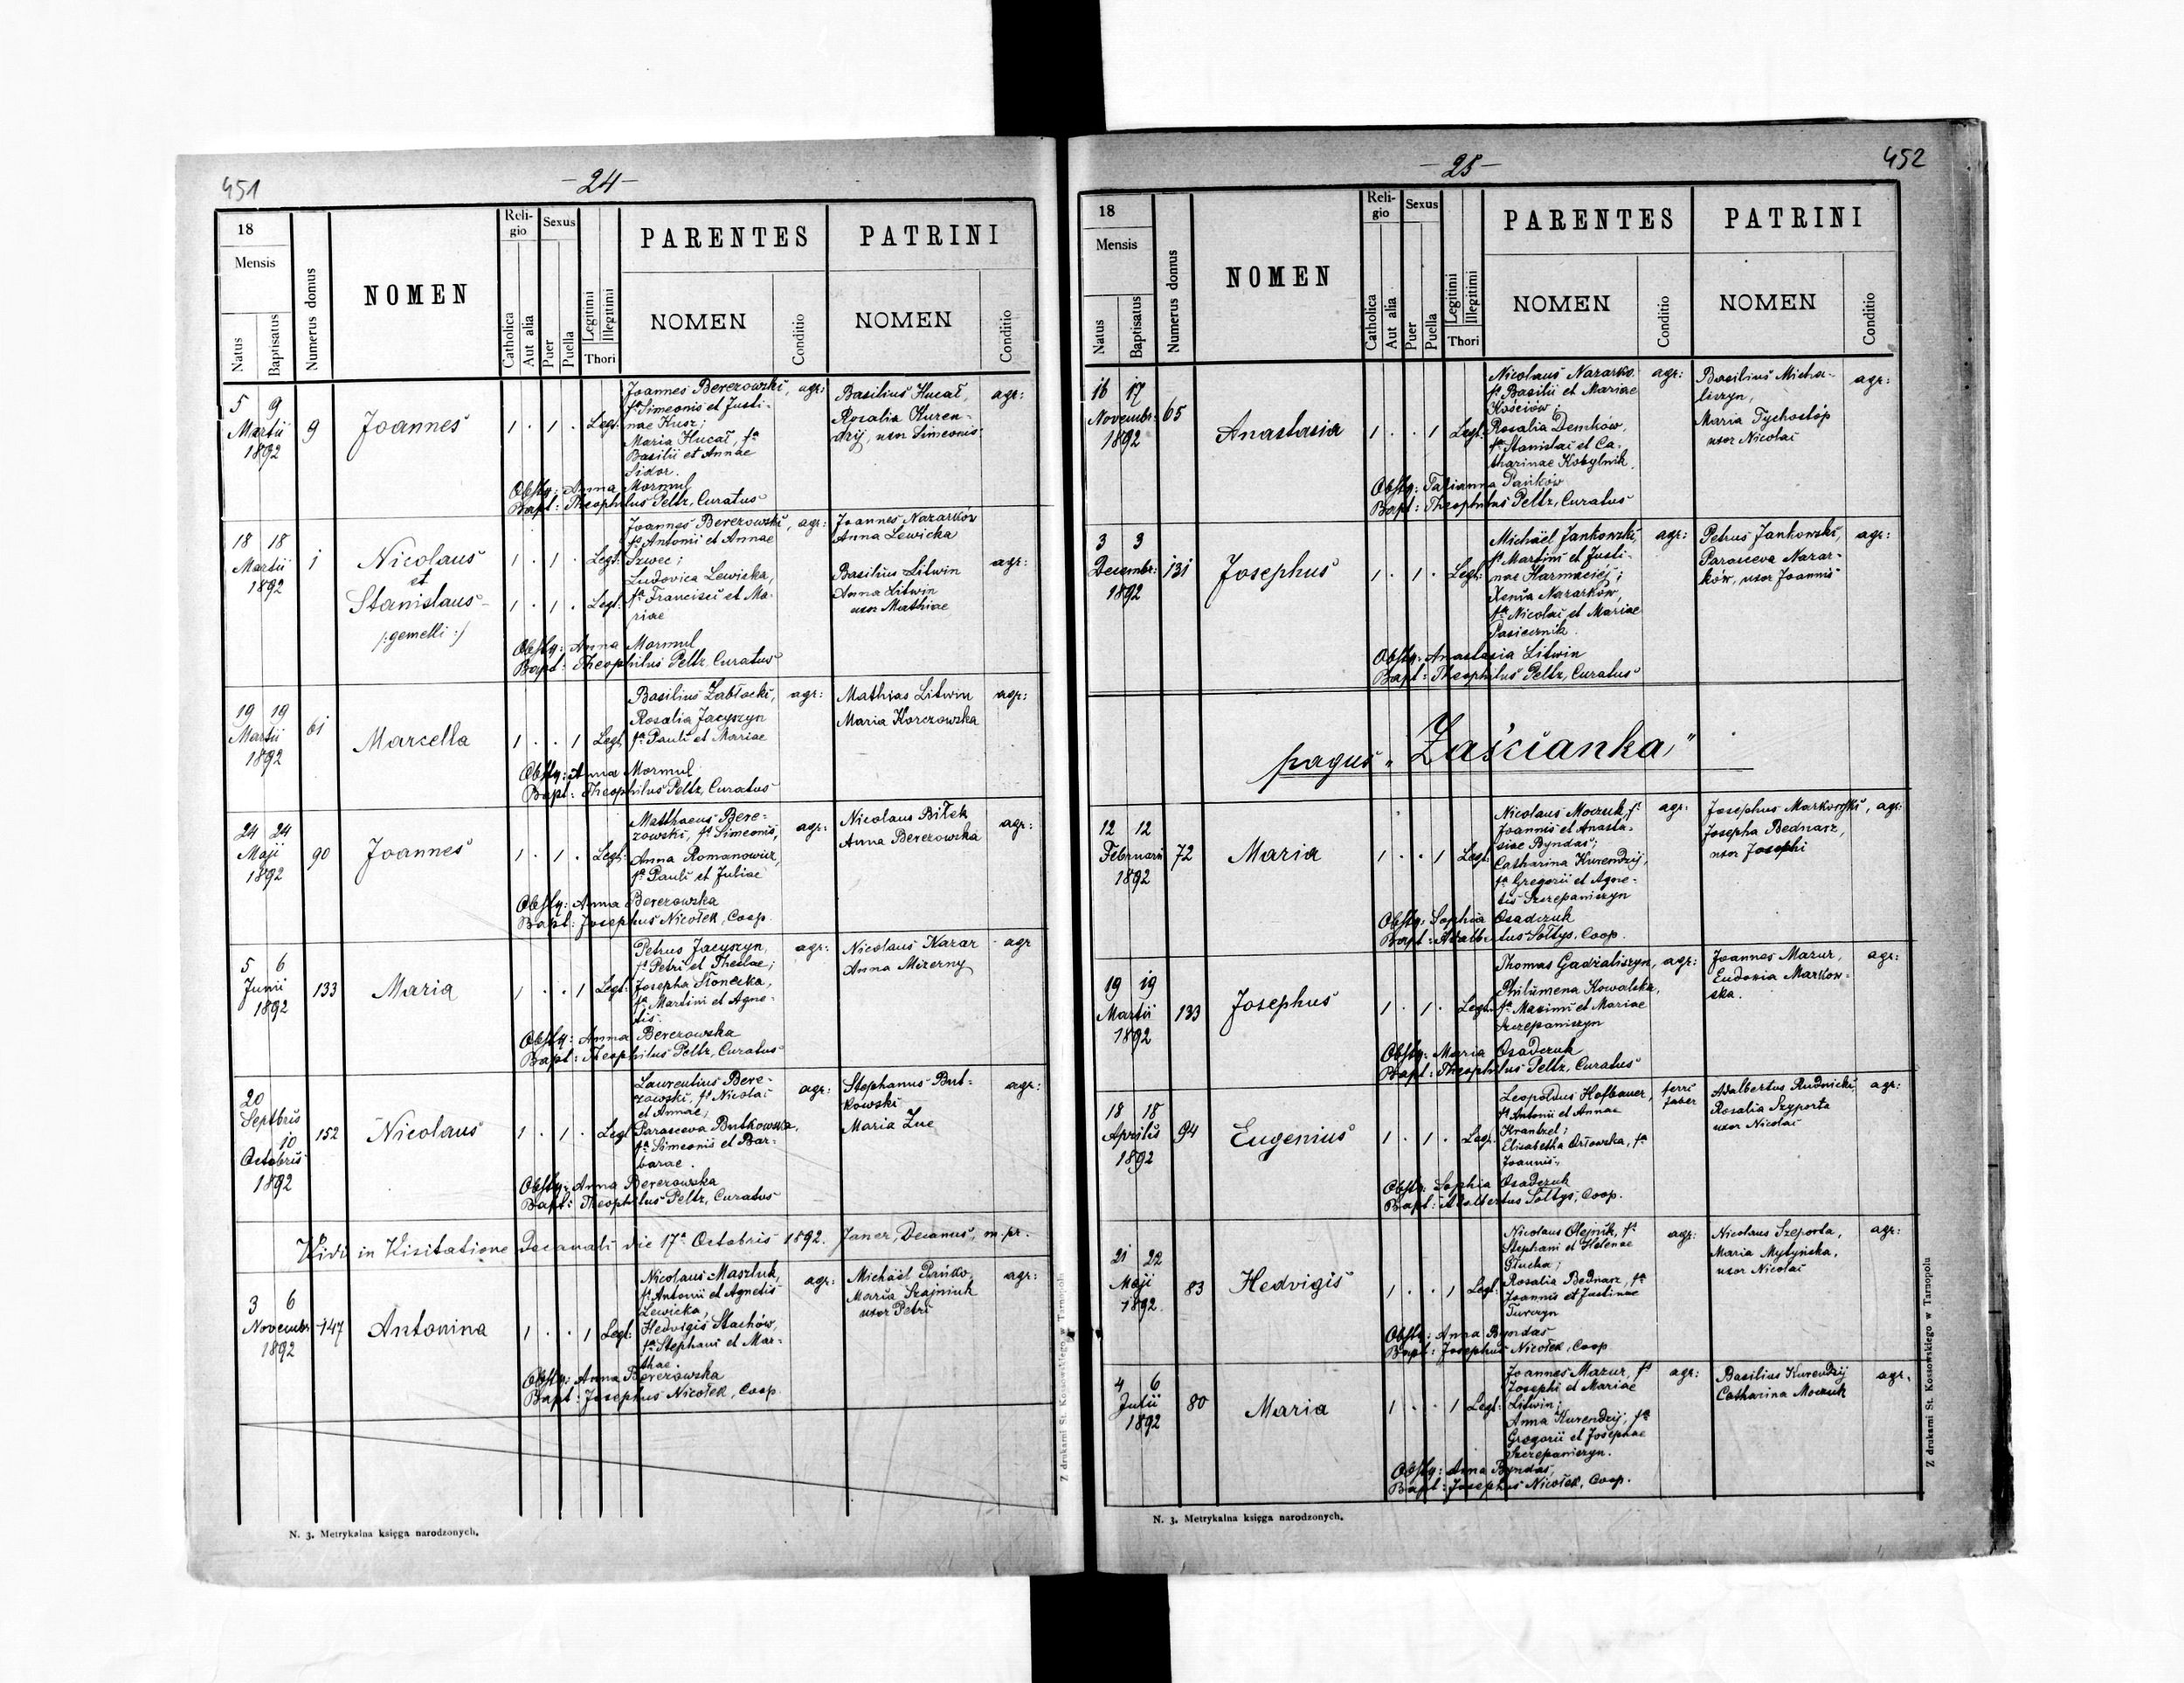 451
-24-
18
Mensis
Natus
Baptisatus
Numerus domus
NOMEN
Reli-
gio
Catholica
Aut alia
Sexus
Puer
Puella
Legitimi
Illegitimi
Thori
PARENTES
NOMEN
Conditio
PATRINI
NOMEN
Conditio
5 9
Martii
1892
9
Joannes
1 . 1 . Legt:
Joannes Berezowski, agr:
fs Simeonis et Justi-
nae Kusz;
Maria Hucał, fa
Basilii et Annae
Sidor.
Basilius Hucał, agr:
Rosalia Kuren-
dzij, uxor Simeonis
Obstx: Anna Mormul
Bapt: Theophilus Peltz, Curatus
18 18
Martii
1892
1
Nicolaus
et
Stanislaus
/:gemelli:/
1 . 1 . Legt:
1 . 1 . Legt:
Joannes Berezowski, agr:
fs Antonii et Annae
Szwec;
Ludovica Lewicka,
fa Francisci et Ma-
riae
Joannes Nazarków
Anna Lewicka
Basilius Litwin agr:
Anna Litwin
uxor Mathiae
Obstx: Anna Mormul
Bapt: Theophilus Peltz, Curatus
19 19
Martii
1892
61
Marcella
1 . . 1 Legt
Basilius Zabłocki, agr:
Rosalia Jacyszyn
fa Pauli et Mariae
Mathias Litwin agr:
Maria Korczowska
Obstx: Anna Mormul
Bapt: Theophilus Peltz, Curatus
24 24
Maji
1892
90
Joannes
1 . 1 . Legt:
Matthaeus Bere-
zowski, fs Simeonis, agr:
Anna Romanowicz,
fa Pauli et Juliae
Nicolaus Biłek agr:
Anna Berezowska
Obstx: Anna Berezowska
Bapt: Josephus Nicołek, Coop.
5 6
Junii
1892
133
Maria
1 . . 1 Legt:
Petrus Jacyszyn, agr:
fs Petri et Theclae;
Josepha Słonecka,
fa Martini et Agne-
tis.
Nicolaus Karar agr
Anna Mizerny
Obstx: Anna Berezowska
Bapt: Theophilus Peltz, Curatus
20
Septbris
10
Octobris
1892
152
Nicolaus
1 . 1 . Legt
Laurentius Bere- agr:
zowski, fs Nicolai
et Annae;
Parasceva Butkowska,
fa Simeonis et Bar-
barae.
Stephanus But- agr:
kowski
Maria Zuc
Obstx: Anna Berezowska
Bapt: Theophilus Peltz, Curatus
Vidi in Visitatione Decanali die 17a Octobris 1892. Janer, Decanus, m.pr.
3 6
Novembr
1892
147
Antonina
1 . . 1 Legt:
Nicolaus Maszluk, agr:
fs Antonii et Agnetis
Lewicka,
Hedvigis Stachów,
fa Stephani et Mar-
thae.
Michaël Pańko, agr:
Maria Szajniuk
uxor Petri
Obstx: Anna Berezowska
Bapt: Josephus Nicołek, Coop.
N. 3. Metrykalna księga narodzonych.
Z drukarni St. Kossowskiego w Tarnopolu
452
-25-
18
Mensis
Natus
Baptisatus
Numerus domus
NOMEN
Reli-
gio
Catholica
Aut alia
Sexus
Puer
Puella
Legitimi
Illegitimi
Thori
PARENTES
NOMEN
Conditio
PATRINI
NOMEN
Conditio
16 17
Novembr:
1892
65
Anastasia
1 . . 1 Legt:
Nicolaus Nazarko, agr:
fs Basilii et Mariae
Kościów;
Rosalia Demków,
fa Stanislai et Ca-
tharinae Kobylnik.
Basilius Micha- agr:
liszyn,
Maria Tychostóp
uxor Nicolai
Obstx: Tatianna Pańków
Bapt: Theophilus Peltz, Curatus
3 3
Decembr:
1892
131
Josephus
1 . 1 . Legt:
Michaël Jankowski, agr:
fs Martini et Justi-
nae Harmaciej;
Xenia Nazarków,
fa Nicolai et Mariae
Pasiecznik.
Petrus Jankowski, agr:
Parasceva Nazar-
ków, uxor Joannis
Obstx: Anastasia Litwin
Bapt: Theophilus Peltz, Curatus
pagus „Zaścianka"
12 12
Februarii
1892
72
Maria
1 . . 1 Legt:
Nicolaus Moczuk, fs agr:
Joannis et Anasta-
siae Byndas;
Catharina Kurendzij,
fa Gregorii et Agne-
tis Szczepaniszyn
Josephus Markowski, agr:
Josepha Bednarz,
uxor Josephi
Obstx: Sophia Osadczuk
Bapt: Adalbertus Sołtys, Coop.
19 19
Martii
1892
133
Josephus
1 . 1 . Legt:
Thomas Gadzaliszyn, agr:
Philumena Kowalska,
fa Maximi et Mariae
Szczepaniszyn
Joannes Mazur, agr:
Eudoxia Markow-
ska.
Obstx: Maria Osadczuk
Bapt: Theophilus Peltz, Curatus
18 18
Aprilis
1892
94
Eugenius
1 . 1 . Legt.
Leopoldus Hofbauer, ferri
faber
fs Antonii et Annae
Krantzel;
Elisabetha Orłowska, fa
Joannis,
Adalbertus Rudnicki, agr:
Rosalia Szyporta
uxor Nicolai
Obstx: Sophia Osadczuk
Bapt: Adalbertus Sołtys, Coop.
21 22
Maji
1892.
83
Hedvigis
1 . . 1 Legt:
Nicolaus Olejnik, fs agr:
Stephani et Helenae
Głucha;
Rosalia Bednarz, fa
Joannis et Justinae
Turczyn
Nicolaus Szeporta, agr:
Maria Mytyńska,
uxor Nicolai
Obstx: Anna Byndas
Bapt: Josephus Nicołek, Coop
4 6
Julii
1892
80
Maria
1 . . 1 Legt:
Joannes Mazur, fs agr:
Josephi et Mariae
Litwin;
Anna Kurendzij, fa
Gregorii et Josephae
Szczepaniszyn.
Basilius Kurendzij agr.
Catharina Moczuk
Obstx: Anna Byndas,
Bapt: Josephus Nicołek, Coop.
N. 3. Metrykalna księga narodzonych.
Z drukarni St. Kossowskiego w Tarnopolu